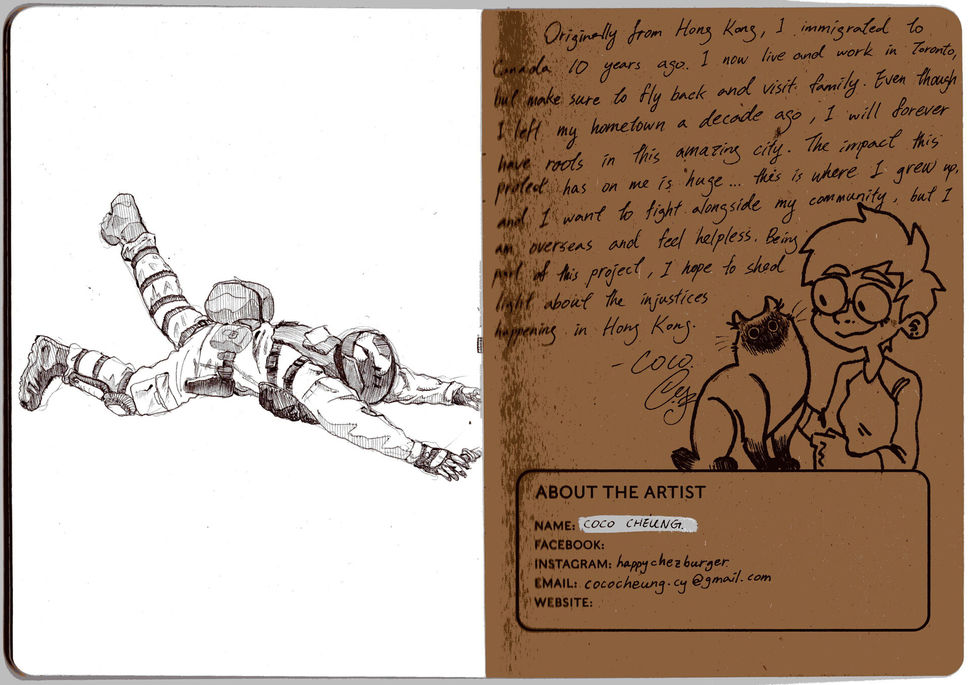 Originally from Hong Kong, I immigrated to
Canada 10 years ago. I now live and work in Toronto,
but make sure to fly back and visit family. Even though
I left my hometown a decade ago, I will forever
have roots in this amazing city. The impact this
protest has on me is huge... this is where I grew up,
and I want to fight alongside my community, but I
am overseas and feel helpless. Being
part of this project, I hope to shed
light about the injustices
happening in Hong Kong.
- COCO.
ABOUT THE ARTIST
NAME: COCO CHEUNG.
FACEBOOK:
INSTAGRAM: happychezburger
EMAIL: cococheung.cy@gmail.com
WEBSITE: